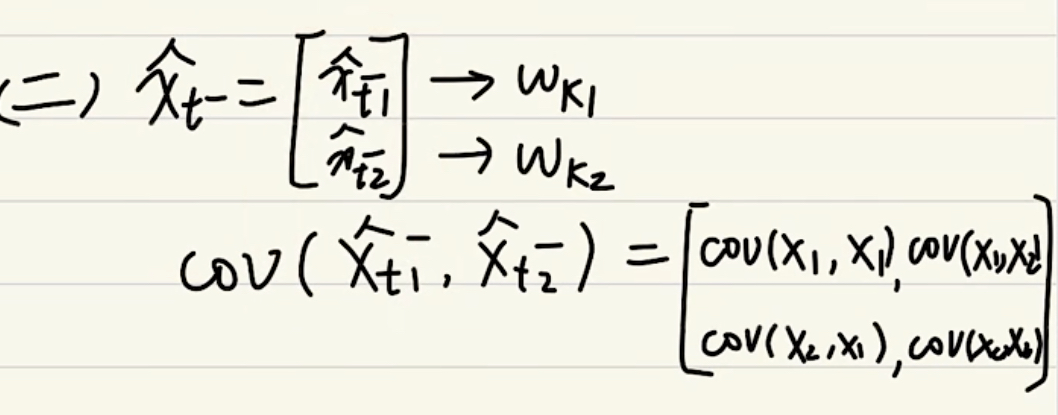 (二) X̂t⁻ = [x̂t1⁻ → wK1
x̂t2⁻] → wK2
cov(X̂t1⁻, X̂t2⁻) = [cov(x1, x1), cov(x1, x2)
cov(x2, x1), cov(x2, x2)]